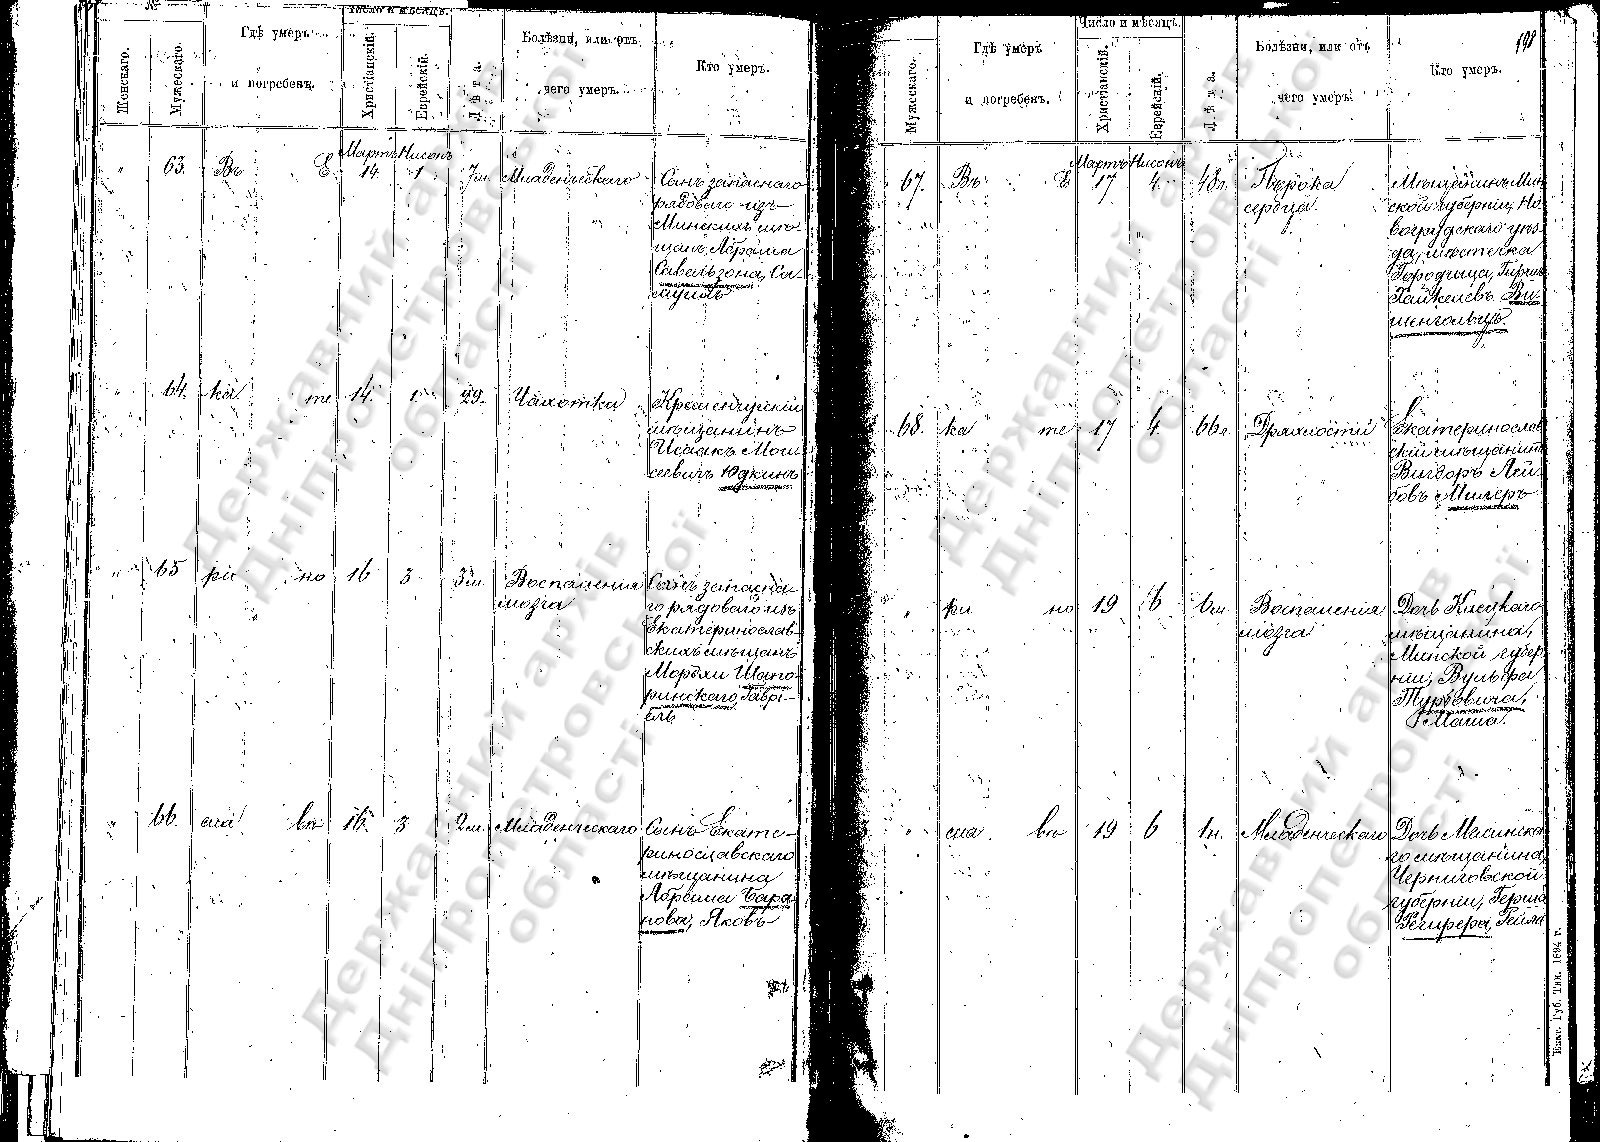 №
Число и мѣсяцъ.
Женскаго.
Мужескаго.
Гдѣ умеръ
и погребенъ.
Христіанскій.
Еврейскій.
Лѣта.
Болѣзни, или отъ
чего умеръ.
Кто умеръ.
„ 63. Въ Е Мартъ 14 Нисонъ 1 7м. Младенческаго
Сынъ запаснаго
рядового изъ
Минскихъ мѣ
щанъ, Абрама
Савельзона, Са
муилъ
„ 64. ка те 14. 1 29. Чахотка
Кременчугскій
мѣщанинъ
Исаакъ Мои
сеевичъ Юдкинъ
„ 65 ри но 16 3 3м. Воспаления
мозга
Сынъ запасна
го рядового изъ
Екатеринослав
скихъ мѣщанъ
Мордхи Шапо
ринскаго, Габрі
елъ
„ 66. сла вѣ 16. 3 2м. Младенческаго
Сынъ Екате
ринославскаго
мѣщанина
Абрама Бара
нова, Яковъ
Число и мѣсяцъ.
198
Мужескаго.
Гдѣ умеръ
и погребенъ.
Христіанскій.
Еврейскій.
Лѣта.
Болѣзни, или отъ
чего умеръ.
Кто умеръ.
67. Въ Е Мартъ 17 Нисонъ 4. 48л. Порока
сердца.
Мѣщанинъ Мин
ской губерніи, Но
вогрудскаго уѣз
да, мѣстечка
Городища, Гиршъ
Хайкелевъ Ви
шенгольцъ.
68. ка те 17 4. 66л. Дряхлости
Екатеринослав
скій мѣщанинъ
Вигдоръ Лей
бовъ Милеръ
„ ри но 19 6 6м. Воспаления
мозга
Дочь Клецкаго
мѣщанина,
Минской губер
ніи, Вульфа
Турбовича,
Маша.
„ сла вѣ 19 6 1н. Младенческаго
Дочь
го мѣщанина,
Черниговской
губерніи, Герша
Гейля
Екат. Губ. Тип. 1894 г.
Державний архів
Дніпропетровської
області
Державний архів
Дніпропетровської
області
Державний архів
Дніпропетровської
області
Державний архів
Дніпропетровської
області